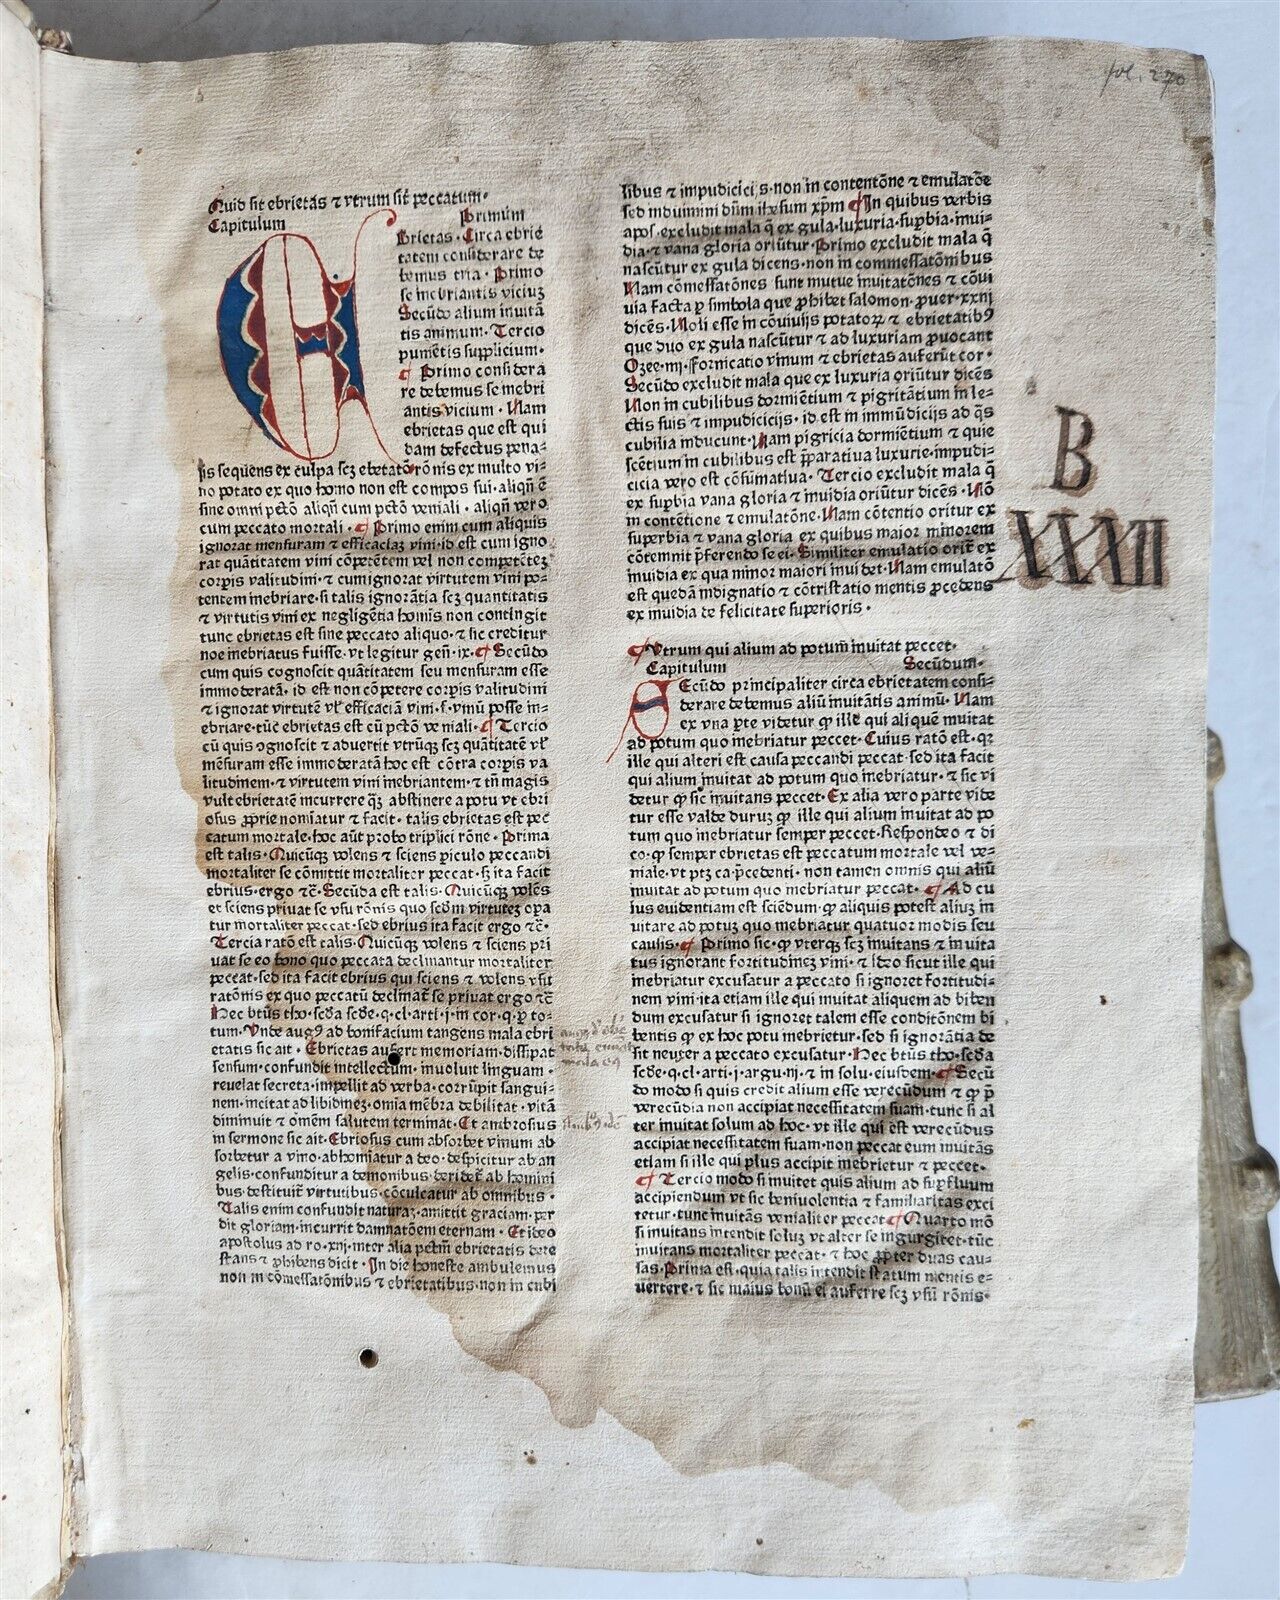 fol. 270
Quid sit ebrietas ⁊ vtrum sit̃ peccatum·
Capitulum Primum
Ebrietas· Circa ebrie
tatem considerare de
bemus tria· Primo
se inebriantis viciuʒ
Secũdo alium inuitã
tis animum· Tercio
puniẽtis supplicium·
¶ Primo considera
re debemus se inebri
antis vicium· Nam
ebrietas que est qui
dam defectus pena-
lis sequens ex culpa scʒ
ex multo vi-
no potato ex quo homo non est compos sui· aliqñ ẽ
sine omni pctõ aliqñ cum pctõ veniali· aliqñ vero
cum peccato mortali· ¶ Primo enim cum aliquis
ignorat mensuram ⁊ efficaciaʒ vini· id est cum igno
rat quãtitatem vini cõpetẽtem vel non competẽteʒ
corpis valitudini· ⁊ cum ignorat virtutem vini po-
tentem inebriare· si talis ignorãtia scʒ quantitatis
⁊ virtutis vini ex negligẽtia homis non contingit
tunc ebrietas est sine peccato aliquo· ⁊ sic creditur
noe inebriatus fuisse· vt legitur geñ· ix· ¶ Secũdo
cum quis cognoscit quãtitatem seu mensuram esse
immoderatã· id est non cõpetere corpis valitudini
⁊ ignorat virtutẽ vl̃ efficaciã vini· s· vinũ posse in-
ebriare· tũc ebrietas est cũ pctõ veniali· ¶ Tercio
cũ quis ꝯgnoscit ⁊ aduertit vtrũqʒ scʒ quãtitatẽ vl̃
mẽsuram esse immoderatã hoc est cõtra corpis va
litudinem· ⁊ virtutem vini inebriantem· ⁊ tñ magis
vult ebrietatẽ incurrere qʒ abstinere a potu vt ebri
osus ꝓprie nominatur ⁊ facit· talis ebrietas est pec
catum mortale· hoc aũt probo triplici rõne· Prima
est talis· Quicũqʒ volens ⁊ sciens piculo peccandi
mortaliter se cõmittit mortaliter peccat· sʒ ita facit
ebrius· ergo ⁊c̃· Secũda est talis· Quicũqʒ volẽs
et sciens priuat se vsu rõnis quo scďm virtuteʒ opa
tur mortaliter peccat· sed ebrius ita facit ergo ⁊c̃·
Tercia ratõ est talis· Quicũqʒ volens ⁊ sciens pri
uat se eo bono quo peccata declinantur mortaliter
peccat· sed ita facit ebrius qui sciens ⁊ volens vsu
ratõnis ex quo peccatũ declinat̃ se priuat ergo ⁊c̃
Hec btũs tho· scďa scďe· q· cl· arti· j· in cor· q· ꝑ to-
tum· Vnde augꝰ ad bonifacium tangens mala ebri
etatis sic ait· Ebrietas aufert memoriam· dissipat
sensum· confundit intellectum· inuoluit linguam·
reuelat secreta· impellit ad verba· corrũpit sangui-
nem· incitat ad libidineʒ· omia mẽbra debilitat· vitã
diminuit ⁊ omẽm salutem terminat· Et ambrosius
in sermone sic ait· Ebriosus cum absorbet vinum ab
sorbetur a vino· abhominatur a deo· despicitur ab an
gelis· confunditur a demonibus· deridet̃ ab homini
bus· destituit̃ virtutibus· cõculcatur ab omnibus·
Talis enim confundit naturaʒ· amittit graciam· per
dit gloriam· incurrit damnatõem eternam· Et ideo
apostolus ad ro· xiij· inter alia pctm̃ ebrietatis dete
stans ⁊ ꝓhibens dicit· In die honeste ambulemus
non in cõmessatõnibus ⁊ ebrietatibus· non in cubi
libus ⁊ impudicicijs· non in contentõne ⁊ emulatõe
sed induimini dñm ihesum xp̃m ¶ In quibus verbis
apos· excludit mala q̃ ex gula· luxuria· supbia· inui-
dia· ⁊ vana gloria oriũtur· Primo excludit mala q̃
nascũtur ex gula dicens· non in commessatõnibus
Nam cõmessatões sunt mutue inuitatões ⁊ cõui
uia facta ꝑ simbola que ꝓhibet salomon· ꝓuer· xxiij
dicẽs· Noli esse in cõuiuijs potatoꝝ ⁊ ebrietatibꝰ
que duo ex gula nascũtur ⁊ ad luxuriam ꝓuocant
Ozee· iiij· Fornicatio vinum ⁊ ebrietas auferũt cor·
Secũdo excludit mala que ex luxuria oriũtur dicẽs
Non in cubilibus dormiẽtium ⁊ pigritãtium in le-
ctis suis ⁊ impudicicijs· id est in immũdicijs ad q̃s
cubilia inducunt· Nam pigricia dormiẽtium ⁊ quie
scẽtium in cubilibus est p̃paratiua luxurie· impudi-
cicia vero est cõsũmatiua· Tercio excludit mala q̃
ex supbia vana gloria ⁊ inuidia oriũtur dicẽs· Nõ
in contentione ⁊ emulatõne· Nam cõtentio oritur ex
superbia ⁊ vana gloria ex quibus maior minorem
cõtemnit p̃ferendo se ei· Similiter emulatio orit̃ ex
inuidia ex qua minor maiori inuidet· Nam emulatõ
est quedã indignatio ⁊ cõtristatio mentis ꝓcedens
ex inuidia de felicitate superioris·
B
XXXII
¶ Vtrum qui alium ad potum inuitat peccet·
Capitulum Secũdum·
Secũdo principaliter circa ebrietatem consi-
derare debemus aliũ inuitãtis animũ· Nam
ex vna pte videtur ꝙ ille qui aliquẽ inuitat
ad potum quo inebriatur peccet· Cuius ratõ est· qꝛ
ille qui alteri est causa peccandi peccat· sed ita facit
qui alium inuitat ad potum quo inebriatur· ⁊ sic vi
detur ꝙ sic inuitans peccet· Ex alia vero parte vide
tur esse valde duruʒ ꝙ ille qui alium inuitat ad po
tum quo inebriatur semper peccet· Respondeo ⁊ di
co· ꝙ semper ebrietas est peccatum mortale vel ve-
niale· vt ptʒ ca· p̃cedenti· non tamen omnis qui aliũ
inuitat ad potum quo inebriatur peccat· ¶ Ad cu
ius euidentiam est sciẽdum· ꝙ aliquis potest aliuʒ in
uitare ad potuʒ quo inebriatur quatuor modis seu
causis· ¶ Primo sic· ꝙ vterqʒ scʒ inuitans ⁊ inuita
tus ignorant fortitudineʒ vini· ⁊ ideo sicut ille qui
inebriatur excusatur a peccato si ignoret fortitudi-
nem vini· ita etiam ille qui inuitat aliquem ad biben
dum excusatur si ignoret talem esse conditõnem bi
bentis ꝙ ex hoc potu inebrietur· sed si ignorãtia de
sit neuter a peccato excusatur· Hec btũs tho· scďa
scďe· q· cl· arti· j· argu· iij· ⁊ in solu· eiusdem· ¶ Secũ
do modo si quis credit alium esse verecũdum ⁊ ꝙ p̃
verecũdia non accipiat necessitatem suam· tunc si al
ter inuitat solum ad hoc· vt ille qui est verecũdus
accipiat necessitatem suam· non peccat eum inuitãs
etiam si ille qui plus accipit inebrietur ⁊ peccet·
¶ Tercio modo si inuitet quis alium ad supfluum
accipiendum vt sic beniuolentia ⁊ familiaritas exci
tetur· tunc inuitãs venialiter peccat ¶ Quarto mõ
si inuitans intendit soluʒ vt alter se ingurgitet· tũc
inuitans mortaliter peccat· ⁊ hoc ꝓpter duas cau-
sas· Prima est· quia talis intendit statum mentis e-
uertere· ⁊ sic maius bonũ ei auferre scʒ vsũ rõnis·